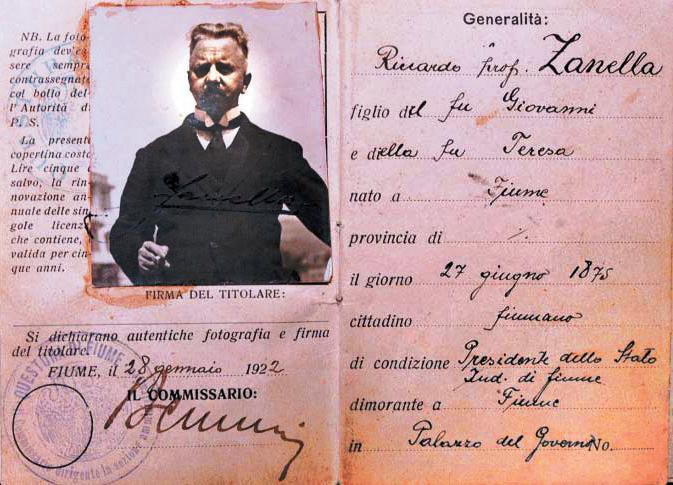 NB. La foto-
grafia dev'es
sere sempre
contrassegnata
col bollo del-
l'Autorità di
P. S.
La presente
copertina costa
Lire cinque
salvo, la rin-
novazione an-
nuale delle sin-
gole licenze
che contiene,
valida per cin-
que anni.
Zanella
FIRMA DEL TITOLARE:
Si dichiarano autentiche fotografia e firma
del titolare.
FIUME, il 28 gennaio 1922
IL COMMISSARIO:
QUESTURA DI FIUME
dirigente la sezione
Generalità:
Riccardo prof. Zanella
figlio del fu Giovanni
e della fu Teresa
nato a Fiume
provincia di /.
il giorno 27 giugno 1875
cittadino fiumano
di condizione Presidente dello Stato
Ind. di fiume
dimorante a Fiume
in Palazzo del Governo No.